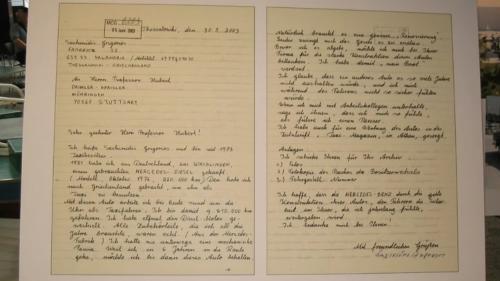 05. Juni 2003
Thessaloniki, den 30.5.2003
Sachinidis Gregorios
55
Thessaloniki - Griechenland
An Herrn Professor Hubert
DAIMLER - KRAISLER
MÖHRINGEN
70567 STUTTGART
Sehr geehrter Herr Professor Hubert!
Ich heiße Sachinidis Gregorios und bin seit 1973
Taxibesitzer.
1981 habe ich aus Deutschland,
einen gebrauchten MERCEDES-DIESEL gekauft
(Modell, Oktober 1976, 220 000 km) Den habe ich
nach Griechenland gebracht, um ihn als
Taxi zu benutzen.
Mit diesem Auto arbeite ich bis heute rund um die
Uhr als Taxifahrer. Ich bin damit
gefahren. Ich habe elfmal den Diesel Motor ge-
wechselt. Alle Zubehörteile, die ich all die
Jahre brauchte, waren echt. (Aus der Mercedes-
Fabrik) Ich hatte nie unterwegs eine mechanische
Panne. Weil ich in 6 Jahren in die Rente
gehe, möchte ich bis dann dieses Auto behalten
Natürlich braucht es eine gewisse "Renovierung".
Leider zwingt mich das Gesetz es zu
Bevor ich es abgebe, möchte ich mich bei Ihrer
Firma für die Konstruktion dieses Autos
bedanken. Ich habe damit
verdient.
Ich glaube, dass ein anderes Auto es so viele Jahre
nicht aushalten würde, und ich mich
während des Fahrens nicht so sicher fühlen
würde.
Wenn ich mich mit Arbeitskollegen unterhalte,
sage ich ihnen, dass ich mich so fühle,
als führe ich einen Panzer.
Ich habe auch für eine Werbung des Autos in der
Zeitschrift, Taxi-Magazin, in Athen, gesorgt.
Anlagen
Ich schicke Ihnen für Ihr Archiv
a) Fotos
b) Fotokopie des Passes des Besitzerwechsels
c) Fahrgestell-Nummer
Ich hoffe, dass die MERCEDES-BENZ durch die gute
Konstruktion ihrer Autos, den Fahrern die Sicher-
heit, im Sinne, die ich jahrelang fühlte,
weitergeben wird.
Ich bedanke mich bei Ihnen
Mit freundlichen Grüßen